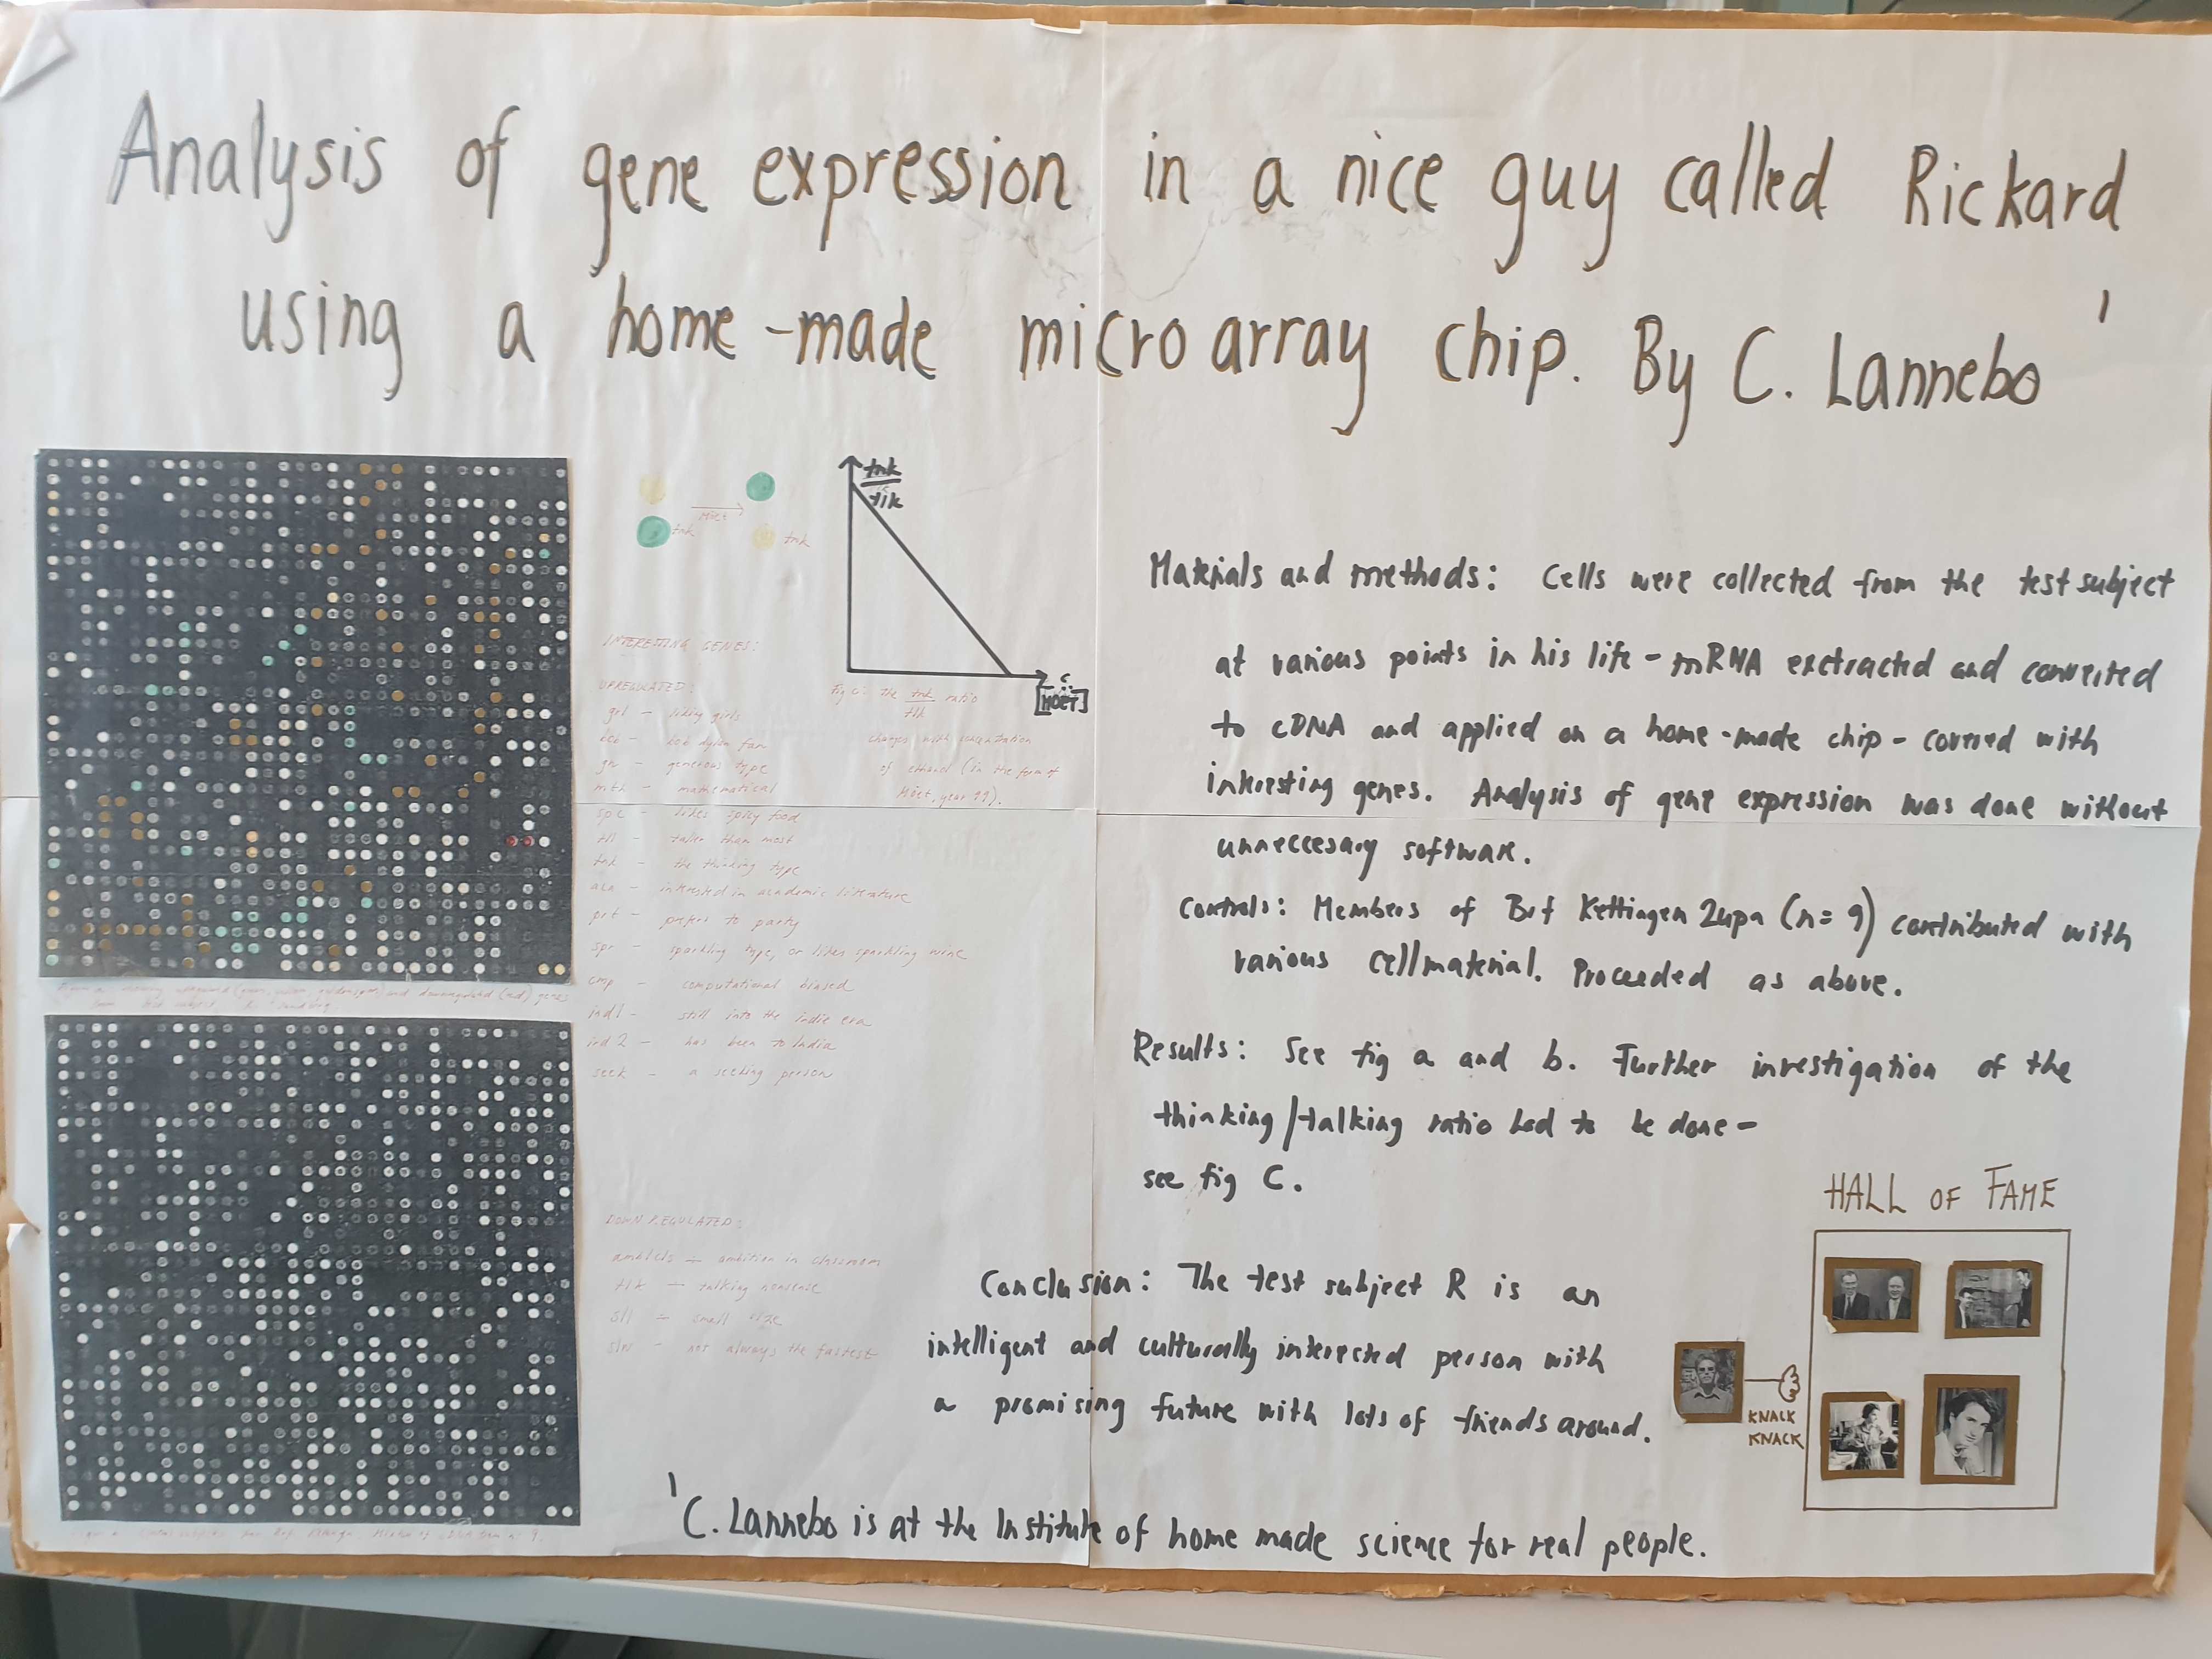 Analysis of gene expression in a nice guy called Rickard
using a home-made microarray chip. By C. Lannebo 1
tnk
tlk
Moët
tnk
tnk
[MOËT]
Fig c: the tnk ratio
tlk
changes with concentration
of ethanol (in the form of
Möet, year 99).
INTERESTING GENES:
UPREGULATED:
grl - liking girls
bob - bob dylan fan
gnr - generous type
mth - mathematical
spc - likes spicy food
tll - taller than most
tnk - the thinking type
aca - intrested in academic literature
prt - prefers to party
spr - sparkling type, or likes sparkling wine
cmp - computational biased
ind1 - still into the indie era
ind2 - has been to India
seek - a seeking person
DOWNREGULATED:
ambicls - ambition in classroom
tlk - talking nonsense
sll - small size
slw - not always the fastest
upregulated and downregulated (red) genes
from test subject
Materials and methods: Cells were collected from the test subject
at various points in his life - mRNA exctracted and converted
to cDNA and applied on a home-made chip - covered with
interesting genes. Analysis of gene expression was done without
unneccesary software.
Controls: Members of Brf Kettingen 2upa (n=9) contributed with
various cellmaterial. Proceeded as above.
Results: See fig a and b. Further investigation of the
thinking/talking ratio had to be done-
see fig C.
Conclusion: The test subject R is an
intelligent and culturally interected person with
a promising future with lots of friends around.
HALL OF FAME
KNACK
KNACK
1 C. Lannebo is at the Institute of home made science for real people.